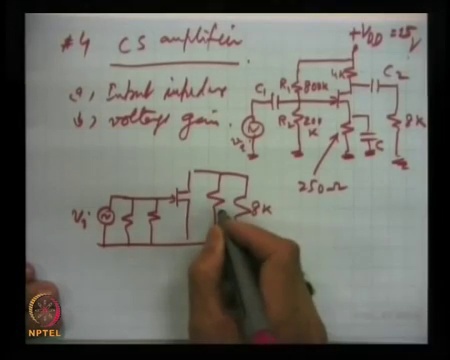 #4 CS amplifier
(a), Input impedance
(b), voltage gain.
+VDD = 25V
4K
C2
R1 800K
C1
R2 200K
8K
C
250Ω
Vi
8K
NPTEL